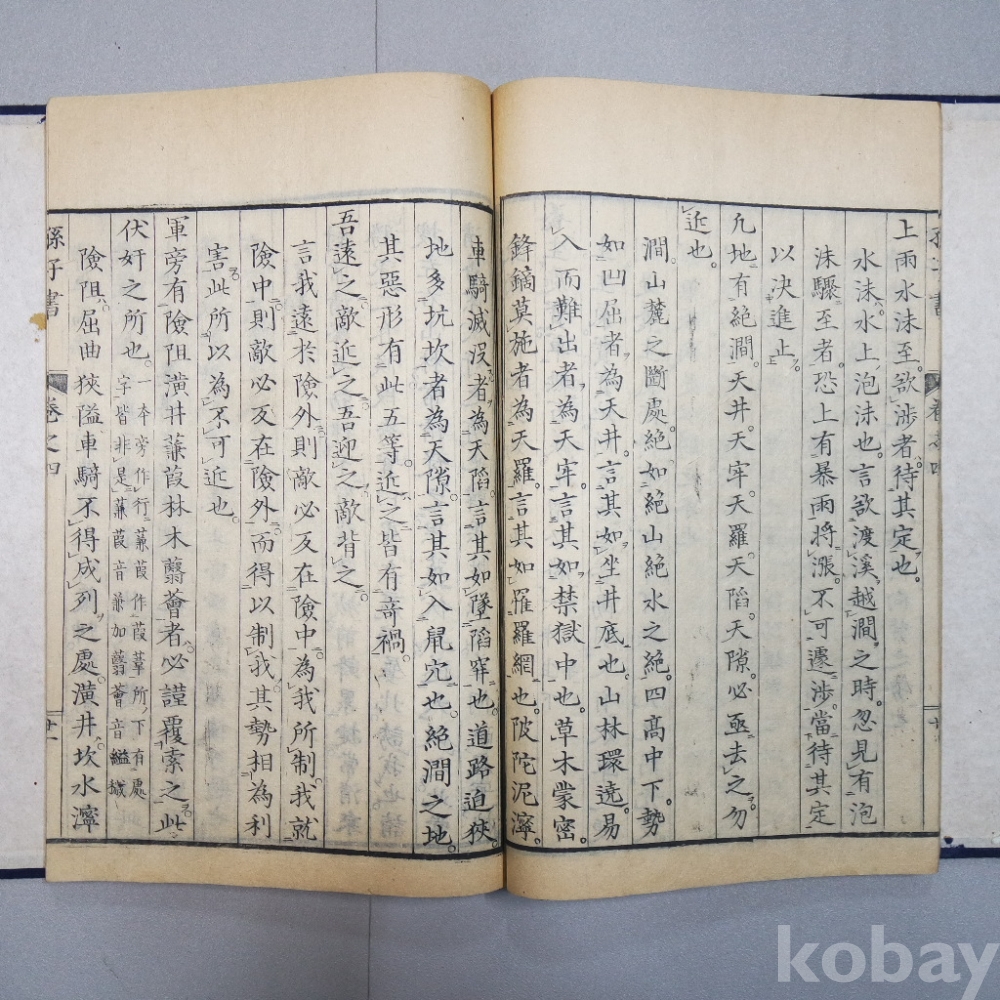 上雨水沫至。欲涉者。待其定也。
水沫。水上泡沫也。言欲渡溪越澗之時。忽見有泡
沫驟至者。恐上有暴雨將漲。不可遽涉。當待其定
以决進止。
凡地有絕澗。天井。天牢。天羅。天陷。天隙。必亟去之。勿
近也。
澗山麓之斷處。絕如絕山絕水之絕。四高中下。勢
如凹屈者。為天井。言其如坐井底也。山林環遶。易
入而難出者。為天牢。言其如禁獄中也。草木蒙密。
鋒鏑莫施者。為天羅。言其如罹羅網也。陂陀泥濘。
車騎減沒者。為天陷。言其如墜陷穽也。道路迫狹。
地多坑坎者。為天隙。言其如入鼠穴也。絕澗之地。
其惡形有此五等。近之皆有奇禍。
吾遠之。敵近之。吾迎之。敵背之。
言我遠於險外。則敵必反在險中。為我所制。我就
險中。則敵必反在險外。而得以制我。其勢相為利
害。此所以為不可近也。
軍旁有險阻潢井蒹葭林木蘙薈者。必謹覆索之。此
伏奸之所也。
一本旁作行。蒹葭作葭葦。所下有處
字。皆非是。蒹葭音兼加。蘙薈音繼穢
險阻。屈曲狹隘。車騎不得成列之處。潢井坎水濘
孫子書
卷之四
十一
kobay